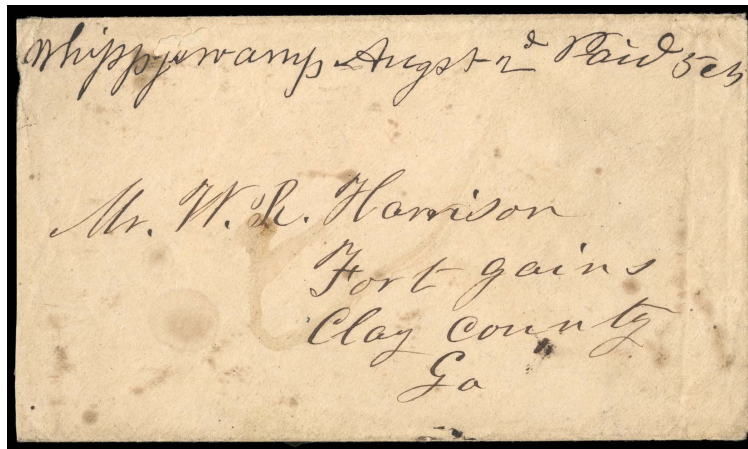 Whippyswamp Augst 2d Paid 5cts
Mr. W. R. Harrison
Fort gains
Clay county
Ga